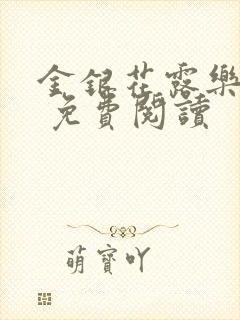 金銀花露樂
免費閱讀
萌寶吖